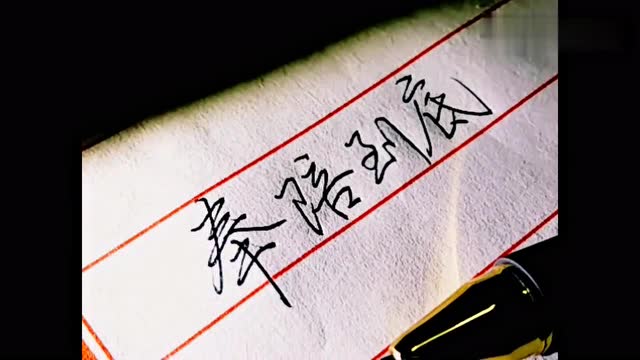 奉陪到底